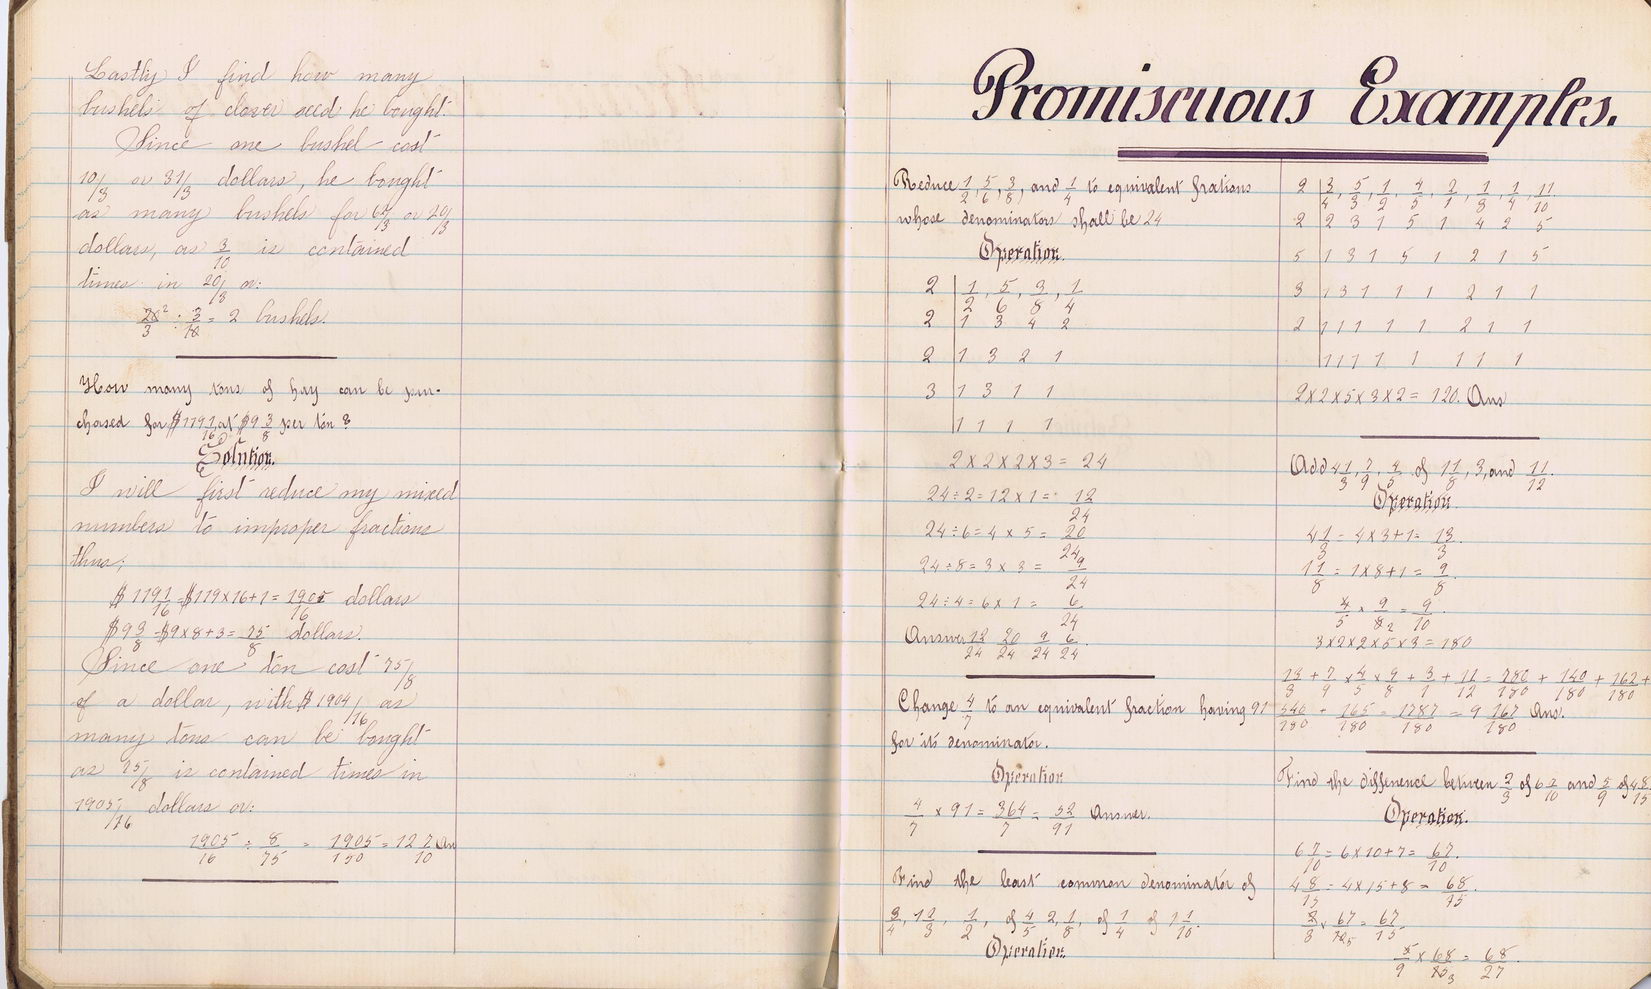 Lastly I find how many
bushels of clover seed he bought.
Since one bushel cost
10/3 or 3 1/3 dollars, he bought
as many bushels for 6 2/3 or 20/3
dollars, as 3/10 is contained
times in 20/3 or:
20/3 ² ÷ 3/10 = 2 bushels.
How many tons of hay can be pur-
chased for $119 1/16 at $9 3/8 per ton?
Solution.
I will first reduce my mixed
numbers to improper fractions
thus;
$119 1/16 = $119×16+1 = 1905/16 dollars
$9 3/8 = $9×8+3 = 75/8 dollars.
Since one ton cost 75/8
of a dollar, with $1904/16 as
many tons can be bought
as 75/8 is contained times in
1905/16 dollars or:
1905/16 ÷ 8/75 = 1905/150 = 12 7/10 An
Promiscuous Examples.
Reduce 1/2, 5/6, 3/8, and 1/4 to equivalent frations
whose denominators shall be 24
Operation.
2 | 1/2, 5/6, 3/8, 1/4
2 | 1 3 4 2
2 | 1 3 2 1
3 | 1 3 1 1
1 1 1 1
2×2×2×3 = 24
24÷2=12×1= 12/24
24÷6=4×5= 20/24
24÷8=3×3= 9/24
24÷4=6×1= 6/24
Answer 12/24 20/24 9/24 6/24
Change 4/7 to an equivalent fraction having 91
for its denominator.
Operation
4/7 × 91 = 364/7 = 52/91 Answer.
Find the least common denominator of
3/4, 1 2/3, 1/2, of 4/5 2, 1/8, of 1/4 of 1 1/10.
Operation.
2 | 3/4, 5/3, 1/2, 4/5, 2/1, 1/8, 1/4, 11/10
2 | 2 3 1 5 1 4 2 5
5 | 1 3 1 5 1 2 1 5
3 | 1 3 1 1 1 2 1 1
2 | 1 1 1 1 1 2 1 1
1 1 1 1 1 1 1 1
2×2×5×3×2 = 120. Ans
Add 4 1/3, 7/9, 4/5 of 1 1/8, 3, and 11/12.
Operation.
4 1/3 = 4×3+1= 13/3.
1 1/8 = 1×8+1 = 9/8.
4/5 × 9/8 2 = 9/10.
3×2×2×5×3 = 180
13/3 + 7/9 × 4/5 × 9/8 + 3/1 + 11/12 = 780/180 + 140/180 + 162/180 +
540/180 + 165/180 = 1787/180 = 9 167/180 Ans.
Find the difference between 2/3 of 6 7/10 and 5/9 of 4 8/15
Operation.
6 7/10 = 6×10+7= 67/10.
4 8/15 = 4×15+8 = 68/15.
2/3 × 67/10 5 = 67/15.
5/9 × 68/15 3 = 68/27.